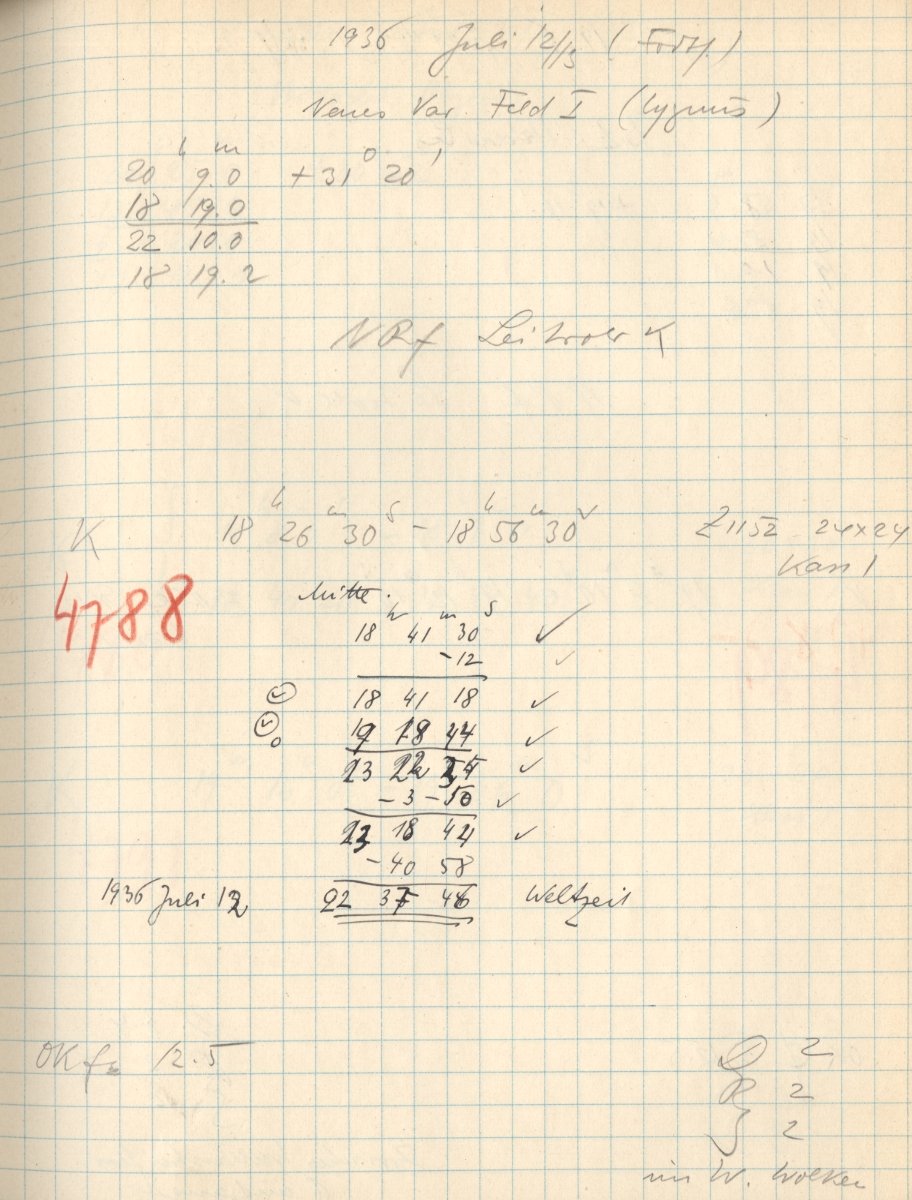 1936 Juli 12/13 (Forts.)
Neues Var. Feld I (Cygnus)
h m o '
20 9.0 + 31 20
18 19.0
22 10.0
18 19.2
NRf
K 18 h 26 m 30 s - 18 h 56 m 30 Z 1152 24x24
Kass 1
4788
Mitte.
18 h 41 m 30 s ✓
-12 ✓
18 41 18 ✓
✓
23 22 ✓
- 3 - 50 ✓
23 18 44 ✓
- 40 58
1936 Juli 12 22 37 46 Weltzeit
OKf = 12.5
2
2
2
im W. Wolken